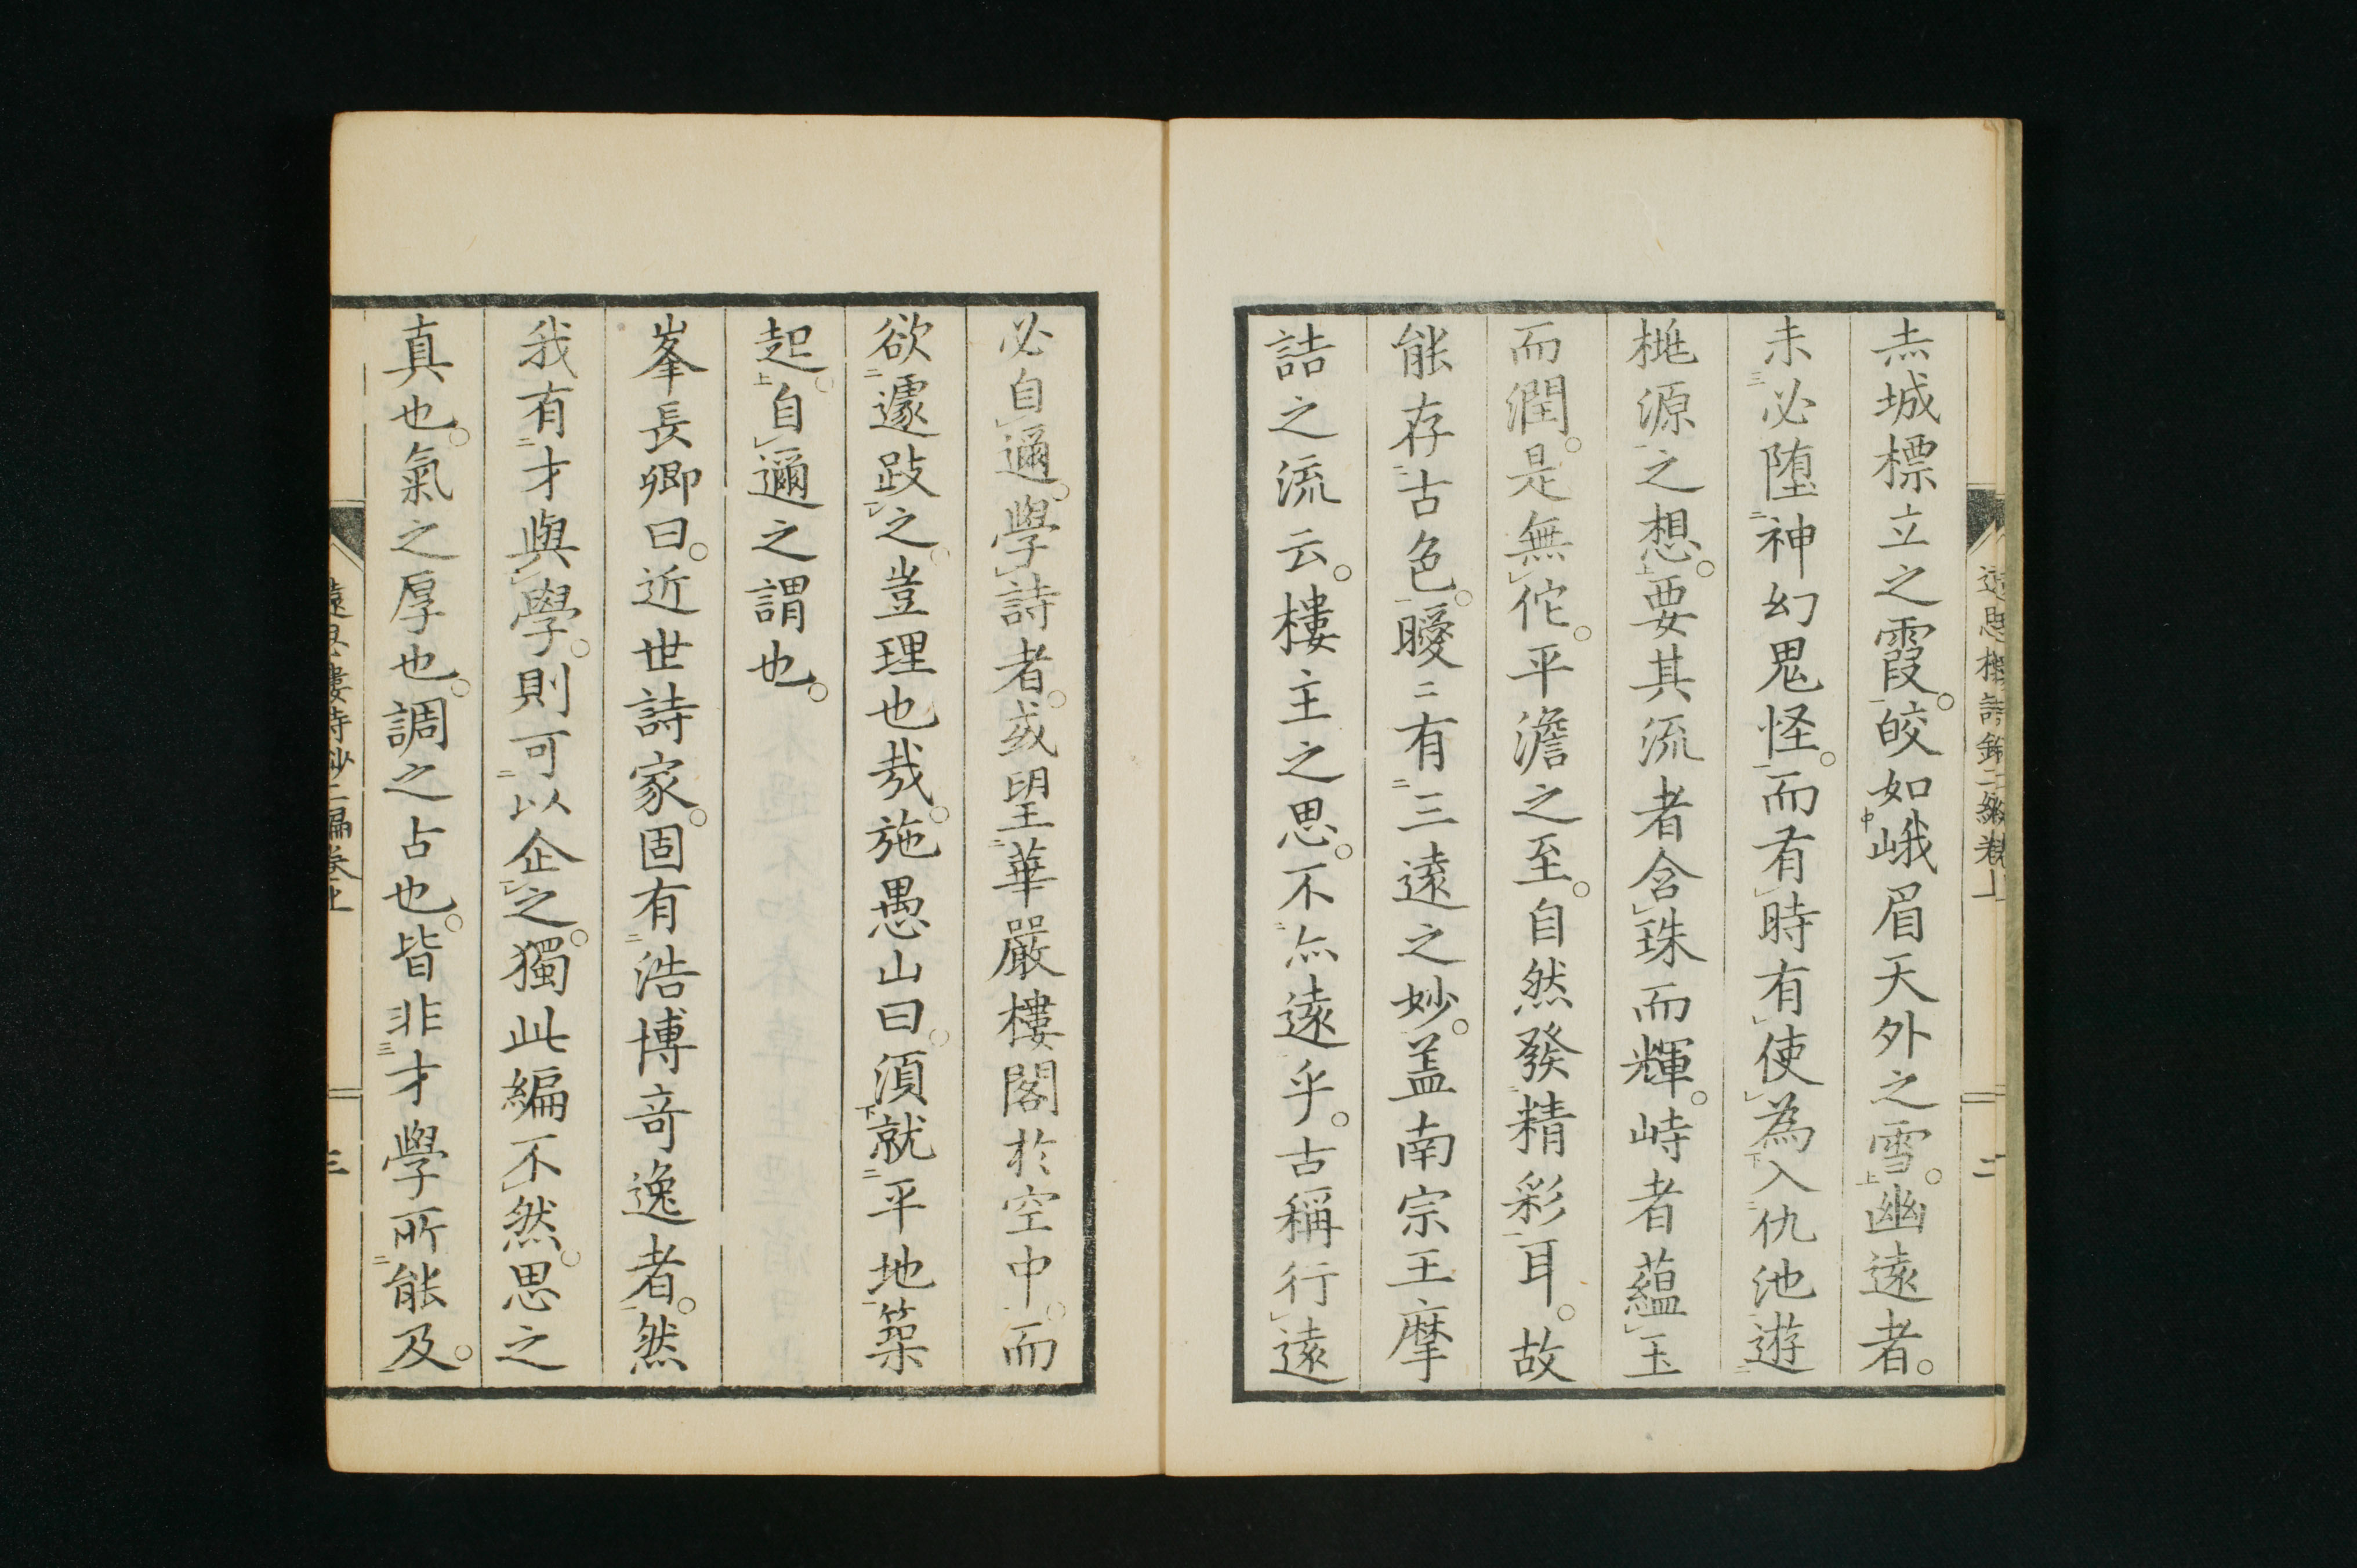 赤城標立之霞。皎如峨眉天外之雪。幽遠者。
未必堕神幻鬼怪。而有時有使為入仇池遊
桃源之想。要其流者含珠而輝。峙者蘊玉
而潤。是無佗。平澹之至。自然發精彩耳。故
能存古色。曖〻有三遠之妙。盖南宗王摩
詰之流云。樓主之思。不亦遠乎。古稱行遠
必自邇。學詩者。或望華嚴樓閣於空中。而
欲遽跂之。豈理也哉。施愚山曰。須就平地築
起。自邇之謂也。
峯長卿曰。近世詩家。固有浩博奇逸者。然
我有才與學。則可以企之。獨此編不然。思之
真也。氣之厚也。調之古也。皆非才學所能及。
遠思樓詩鈔二編卷上
三
遠思樓詩鈔二編卷上
二